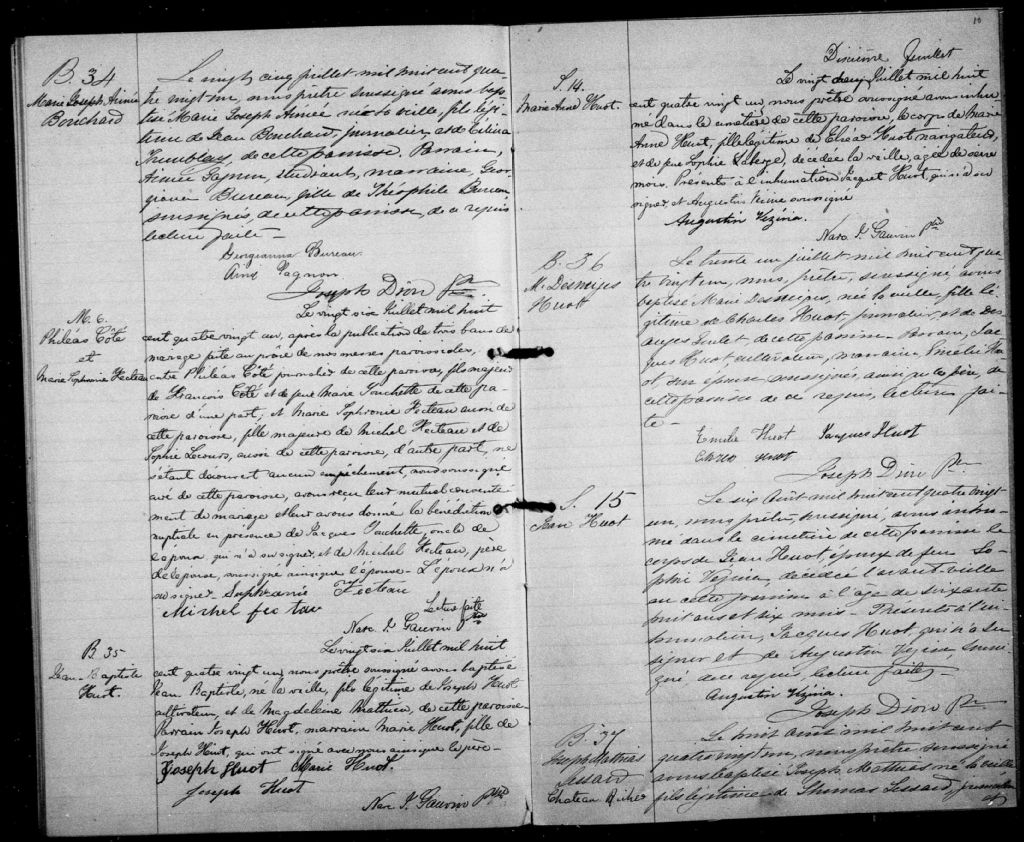 B. 34
Marie Joseph Aimée
Bouchard
Le vingt cinq juillet mil huit cent qua-
tre vingt un, nous prêtre soussigné avons bap-
tisé Marie Joseph Aimée née la veille, fille légi-
time de Jean Bouchard, journalier, et de Célina
Tremblay, de cette paroisse. Parrain,
Aimée Gagnon, étudiant, marraine, Geor-
giana Bureau, fille de Théophile Bureau
soussignés, de cette paroisse, de ce requis
lecture faite -
Georgianna Bureau
Gagnon
Joseph Dion Ptre
M. 6.
Philéas Côté
et
Marie Sophronie Fecteau
Le vingt six Juillet mil huit
cent quatre vingt un, après la publication de trois bans de
mariage faite au prône de nos messes paroissiales,
entre Philéas Côté journalier de cette paroisse, fils majeur
de François Côté et de feue Marie Touchette de cette pa-
roisse d'une part, et Marie Sophronie Fecteau aussi de
cette paroisse, fille majeure de Michel Fecteau et de
Sophie Lecours, aussi de cette paroisse, d'autre part, ne
s'étant découvert aucun empêchement, nous soussigné
curé de cette paroisse, avons reçu leur mutuel consente-
ment de mariage et leur avons donné la bénédiction
nuptiale en présence de Jacques Touchette, oncle de
l'époux, qui n'a su signer, et de Michel Fecteau, père
de l'épouse, soussigné ainsi que l'épouse - L'époux n'a
su signer. Sophranie Fecteau
Michel fectau Lecture faite
Narc. J. Gauvin Ptre
B. 35
Jean-Baptiste
Huot.
Le vingt six Juillet mil huit
cent quatre vingt un, nous prêtre soussigné avons baptisé
Jean Baptiste, né la veille, fils légitime de Joseph Huot
cultivateur, et de Magdeleine Mathieu, de cette paroisse
Parrain Joseph Huot, marraine Marie Huot, fille de
Joseph Huot, qui ont signé avec nous ainsi que le père
Joseph Huot Marie Huot.
Joseph Huot
Narc. J. Gauvin Ptre
10
Dixième feuillet
S. 14.
Marie Anne Huot.
Le vingt Juillet mil huit
cent quatre vingt un, nous prêtre soussigné avons inhu-
mé dans le cimetière de cette paroisse, le corps de Marie
Anne Huot, fille légitime de Elzéar Huot navigateur,
et de feue Sophie Laberge, décédée la veille, agée de
mois. Présents à l'inhumation Jacques Huot, qui n'a su
signer et Augustin Vézina soussigné
Augustin Vézina.
Narc. J. Gauvin Ptre
B. 36
M. Desneiges
Huot
Le trente un juillet mil huit cent qua-
tre vingt un, nous, prêtre, soussigné, avons
baptisé Marie Desneiges, née la veille, fille lé-
gitime de Charles Huot, journalier, et de Des-
anges Soulet, de cette paroisse - Parrain, Jac-
ques Huot, cultivateur, marraine, Emélie Hu-
ot, son épouse soussignés, ainsi que le père, de
cette paroisse de ce requis, lecture fai-
te -
Emilie Huot Jacques Huot
Huot
Joseph Dion Ptre
S. 15
Jean Huot
Le six Août mil huit cent quatre vingt
un, nous, prêtre, soussigné, avons inhu-
mé dans le cimetière de cette paroisse le
corps de Jean Huot, époux de feue So-
phie Vézina, décédé l'avant-veille
en cette paroisse à l'âge de soixante
huit ans et six mois - Présents à l'in-
humation, Jacques Huot, qui n'a su
signer et de Augustin Vézina soussi-
gné de ce requis, lecture faite -
Augustin Vézina.
Joseph Dion Ptre
B. 37
Joseph Mathias
Lessard
Chateau Richer
Le huit août mil huit cent
quatre vingt un, nous prêtre soussigné
avons baptisé Joseph Mathias né la veille
fils légitime de Thomas Lessard, journalier
et